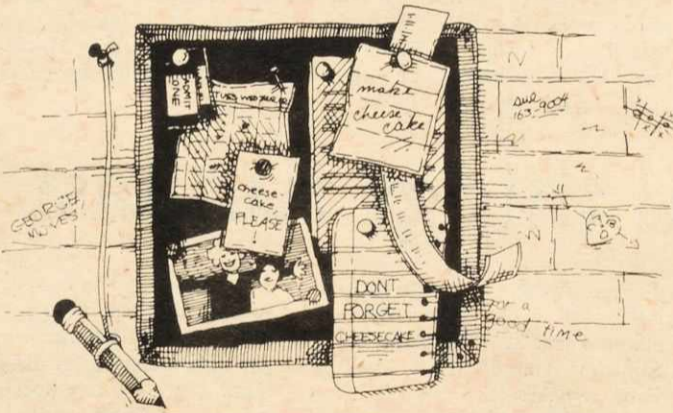 make
cheese
cake
cheese-
cake,
PLEASE
!
DONT
FORGET
CHEESECAKE
GEORGE
for a
good time